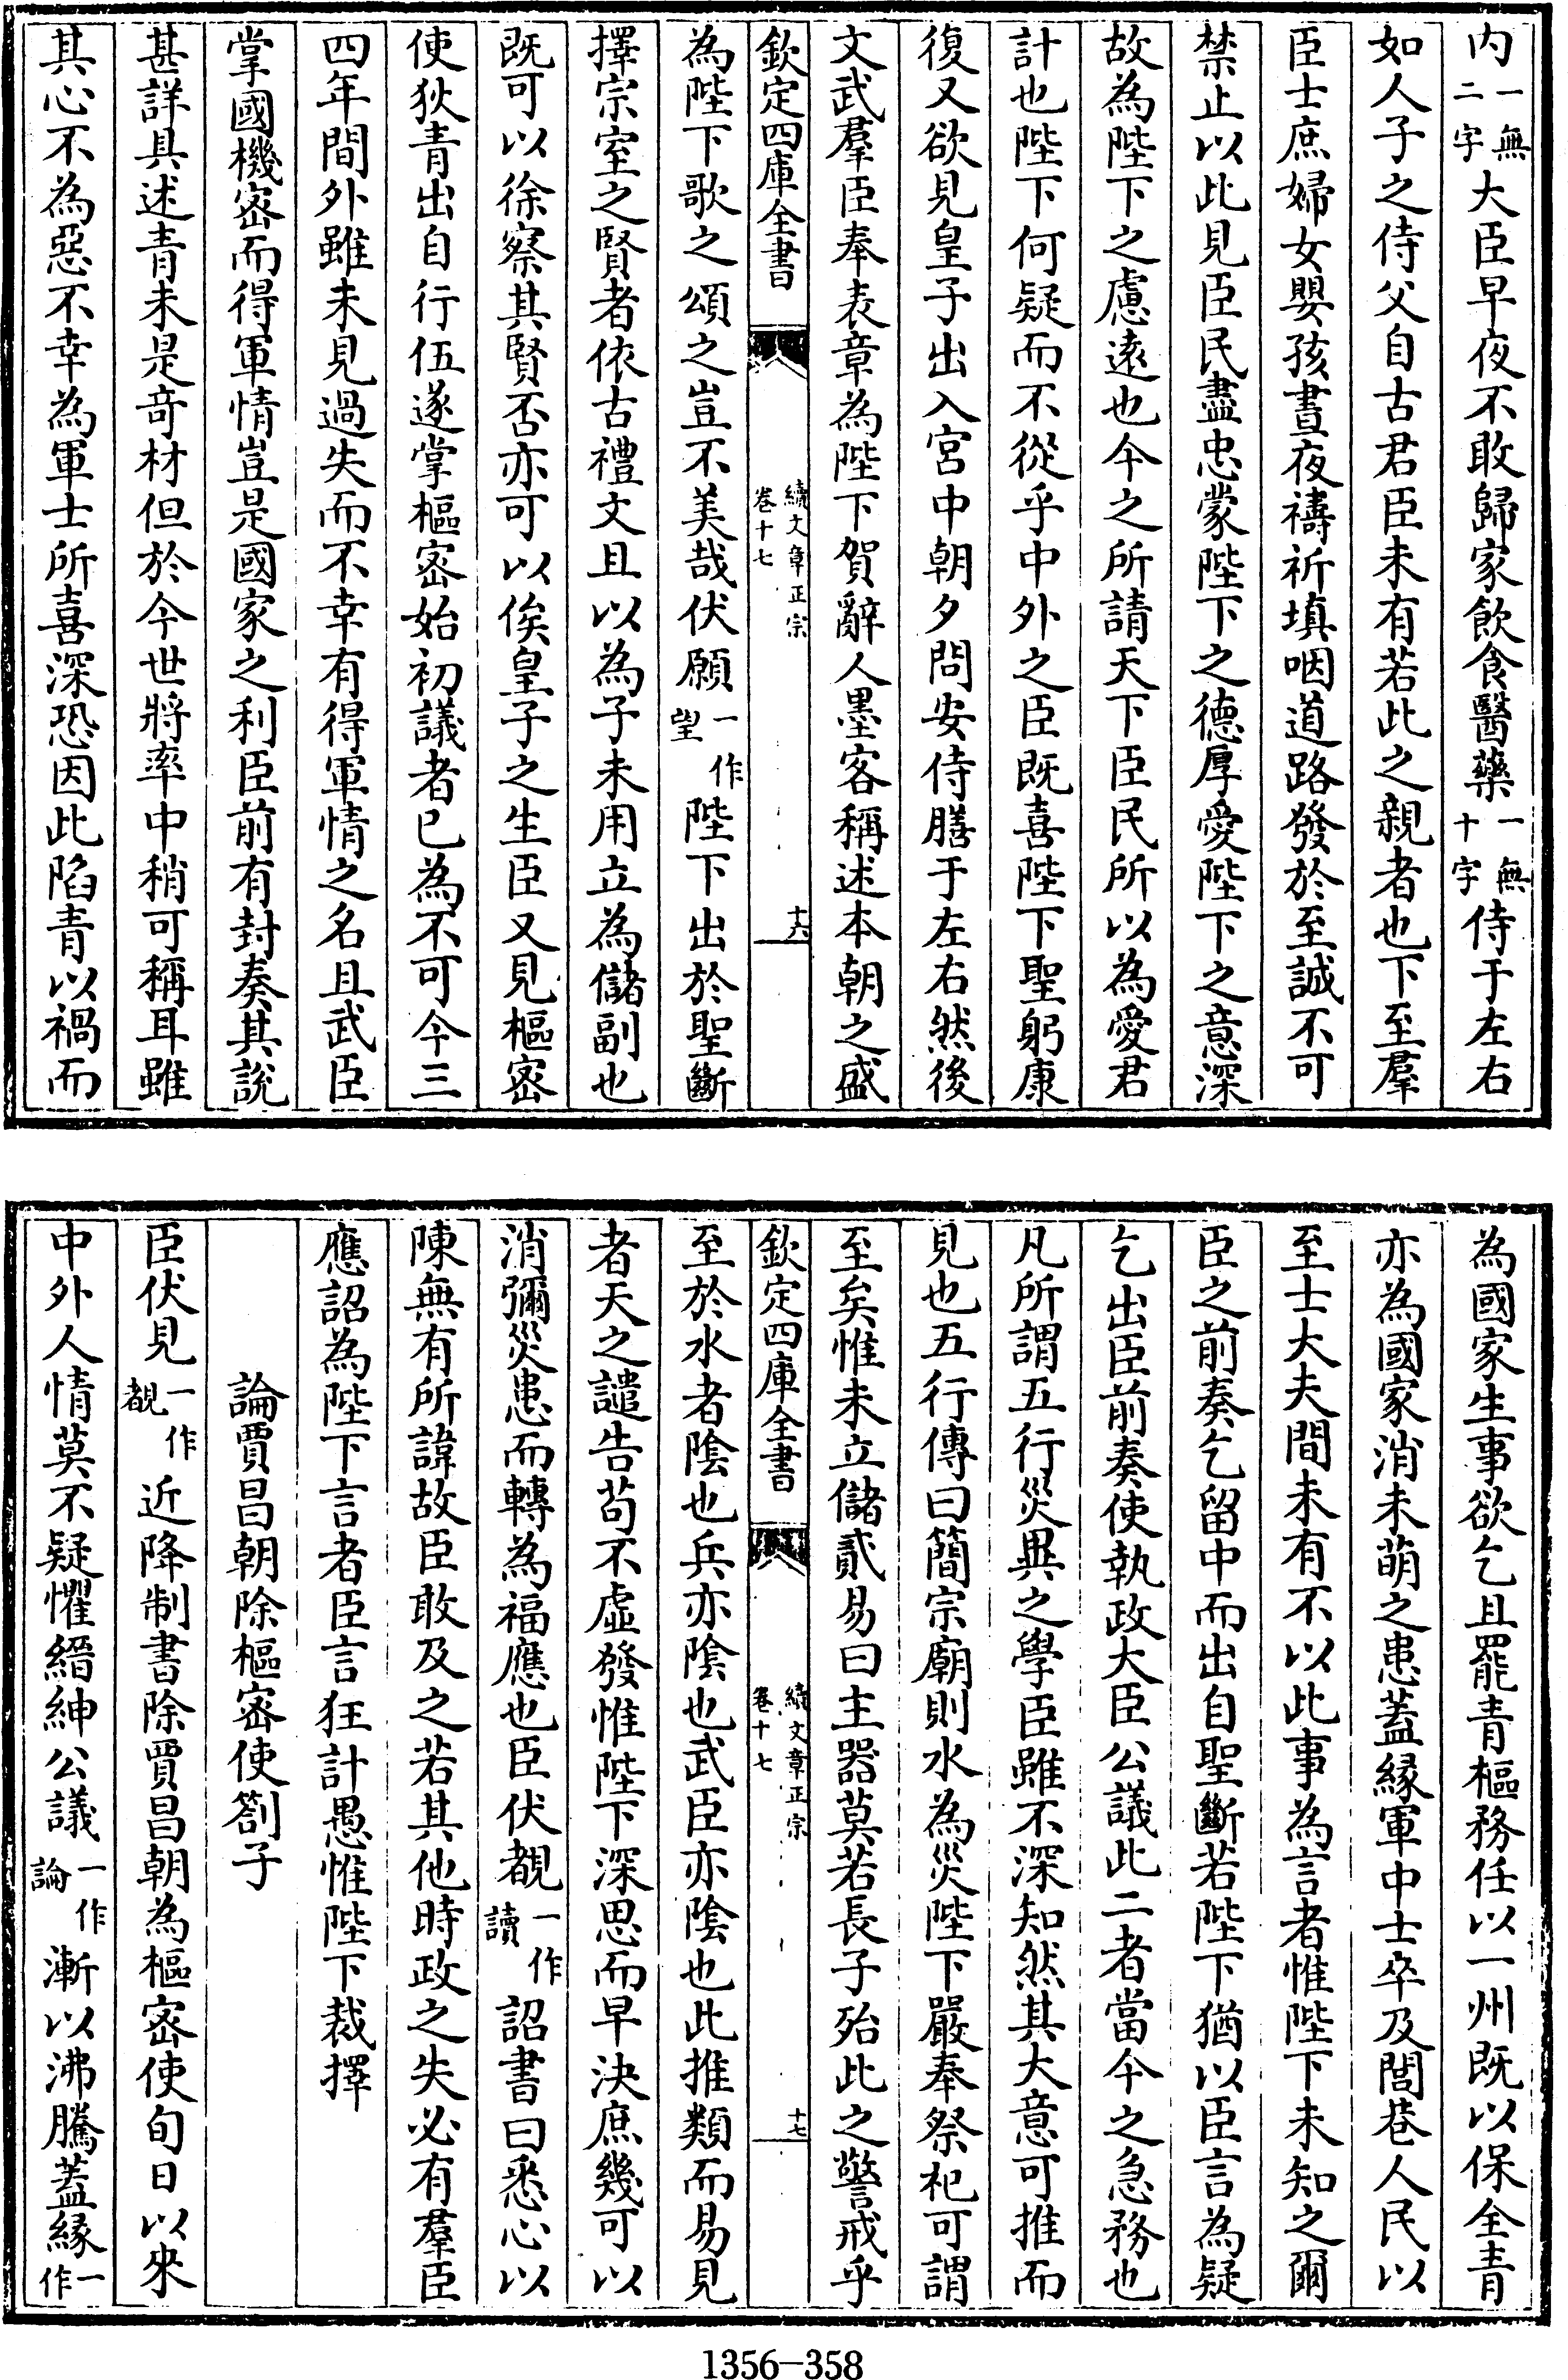 内一無二字大臣早夜不敢歸家飲食醫藥一無十字侍于左右
如人子之侍父自古君臣未有若此之親者也下至羣
臣士庶婦女嬰孩晝夜禱祈填咽道路發於至誠不可
禁止以此見臣民盡忠蒙陛下之德厚愛陛下之意深
故為陛下之慮逺也今之所請天下臣民所以為愛君
計也陛下何疑而不從乎中外之臣既喜陛下聖躬康
復又欲見皇子出入宮中朝夕問安侍膳于左右然後
文武羣臣奉表章為陛下賀辭人墨客稱述本朝之盛
欽定四庫全書
續文章正宗
卷十七
十六
為陛下歌之頌之豈不美哉伏願一作望陛下出於聖斷
擇宗室之賢者依古禮文且以為子未用立為儲副也
既可以徐察其賢否亦可以俟皇子之生臣又見樞密
使狄青出自行伍遂掌樞密始初議者已為不可今三
四年間外雖未見過失而不幸有得軍情之名且武臣
掌國機密而得軍情豈是國家之利臣前有封奏其說
甚詳具述青未是奇材但於今世將率中稍可稱耳雖
其心不為惡不幸為軍士所喜深恐因此陷青以禍而
為國家生事欲乞且罷青樞務任以一州既以保全青
亦為國家消未萌之患蓋緣軍中士卒及閭巷人民以
至士大夫間未有不以此事為言者惟陛下未知之爾
臣之前奏乞留中而出自聖斷若陛下猶以臣言為疑
乞出臣前奏使執政大臣公議此二者當今之急務也
凡所謂五行災異之學臣雖不深知然其大意可推而
見也五行傳曰簡宗廟則水為災陛下嚴奉祭祀可謂
至矣惟未立儲貳易曰主器莫若長子殆此之警戒乎
欽定四庫全書
續文章正宗
卷十七
十七
至於水者陰也兵亦陰也武臣亦陰也此推類而易見
者天之譴告苟不虛發惟陛下深思而早決庶幾可以
消彌災患而轉為福應也臣伏覩一作讀詔書曰悉心以
陳無有所諱故臣敢及之若其他時政之失必有羣臣
應詔為陛下言者臣言狂計愚惟陛下裁擇
論賈昌朝除樞密使劄子
臣伏見一作覩近降制書除賈昌朝為樞密使旬日以來
中外人情莫不疑懼縉紳公議一作論漸以沸騰蓋緣一作
1356-358